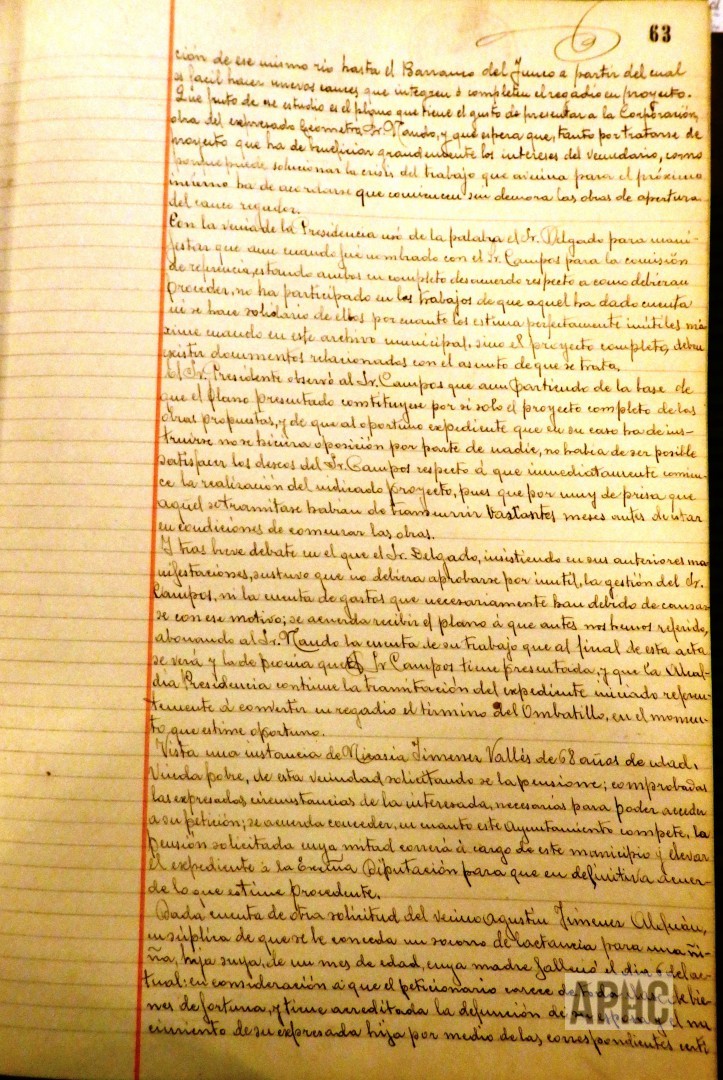 63
ción de ese mismo río hasta el Barranco del Junco a partir del cual
es fácil hacer nuevos cauces que integren ó completen el regadío en proyecto.
Que fruto de ese estudio es el plano que tiene el gusto de presentar a la Corporación,
obra del expresado Geometra Sr. Nando, y que espera que, tanto por tratarse de
proyecto que ha de beneficiar grandemente los intereses del vecindario, como
porque puede solucionar la crisis del trabajo que avecina para el próximo
invierno ha de acordarse que comiencen sin demora las obras de apertura
del cauce regador.
Con la venia de la Presidencia usó de la palabra el Sr. Delgado para mani-
festar que aun cuando fué nombrado con el Sr. Campos para la comisión
de referencia, estando ambos en completo desacuerdo respecto a como debieran
proceder, no ha participado en los trabajos de que aquél ha dado cuenta
ni se hace solidario de ellos por cuanto los estima perfectamente inútiles má-
xime cuando en este archivo municipal, sino el proyecto completo, deben
existir documentos relacionados con el asunto de que se trata.
El Sr. Presidente observó al Sr. Campos que aun partiendo de la base de
que el plano presentado constituyese por si solo el proyecto completo de las
obras propuestas, y de que al oportuno expediente que en su caso ha de ins-
truirse no se hiciera oposición por parte de nadie, no había de ser posible
satisfacer los deseos del Sr. Campos respecto á que inmediatamente comien-
ce la realización del indicado proyecto, pues que por muy de prisa que
aquél se tramitase habían de transcurrir bastantes meses antes de estar
en condiciones de comenzar las obras.
Y tras breve debate en el que el Sr. Delgado, insistiendo en sus anteriores ma-
nifestaciones, sostuvo que no debiera aprobarse por inutil, la gestión del Sr.
Campos, ni la cuenta de gastos que necesariamente han debido de causar-
se con ese motivo; se acuerda recibir el plano á que antes nos hemos referido,
abonando al Sr. Nando la cuenta de su trabajo que al final de esta acta
se verá y la de peonía que el Sr Campos tiene presentada, y que la Alcal-
día Presidencia continue la tramitación del expediente iniciado referen-
temente á convertir en regadío el término del Ombatillo, en el momen-
to que estime oportuno.
Vista una instancia de Nicasia Jimenez Vallés de 68 años de edad,
viuda pobre, de esta vecindad solicitando se la pensione; comprobadas
las expresadas circunstancias de la interesada, necesarias para poder acceder
a su petición; se acuerda conceder, en cuanto este Ayuntamiento compete, la
pensión solicitada cuya mitad correrá á cargo de este municipio y elevar
el expediente á la Excma Diputación para que en definitiva acuer-
de lo que estime procedente.
Dada cuenta de otra solicitud del vecino Agustín Jimenez
en súplica de que se le conceda un socorro de lactancia para una ni-
ña, hija suya, de un mes de edad, cuya madre falleció el día 6 del ac-
tual: en consideración á que el peticionario carece de toda clase de bie-
nes de fortuna, y tiene acreditada la defunción de su esposa y el na-
cimiento de su expresada hija por medio de las correspondientes certi
APHC